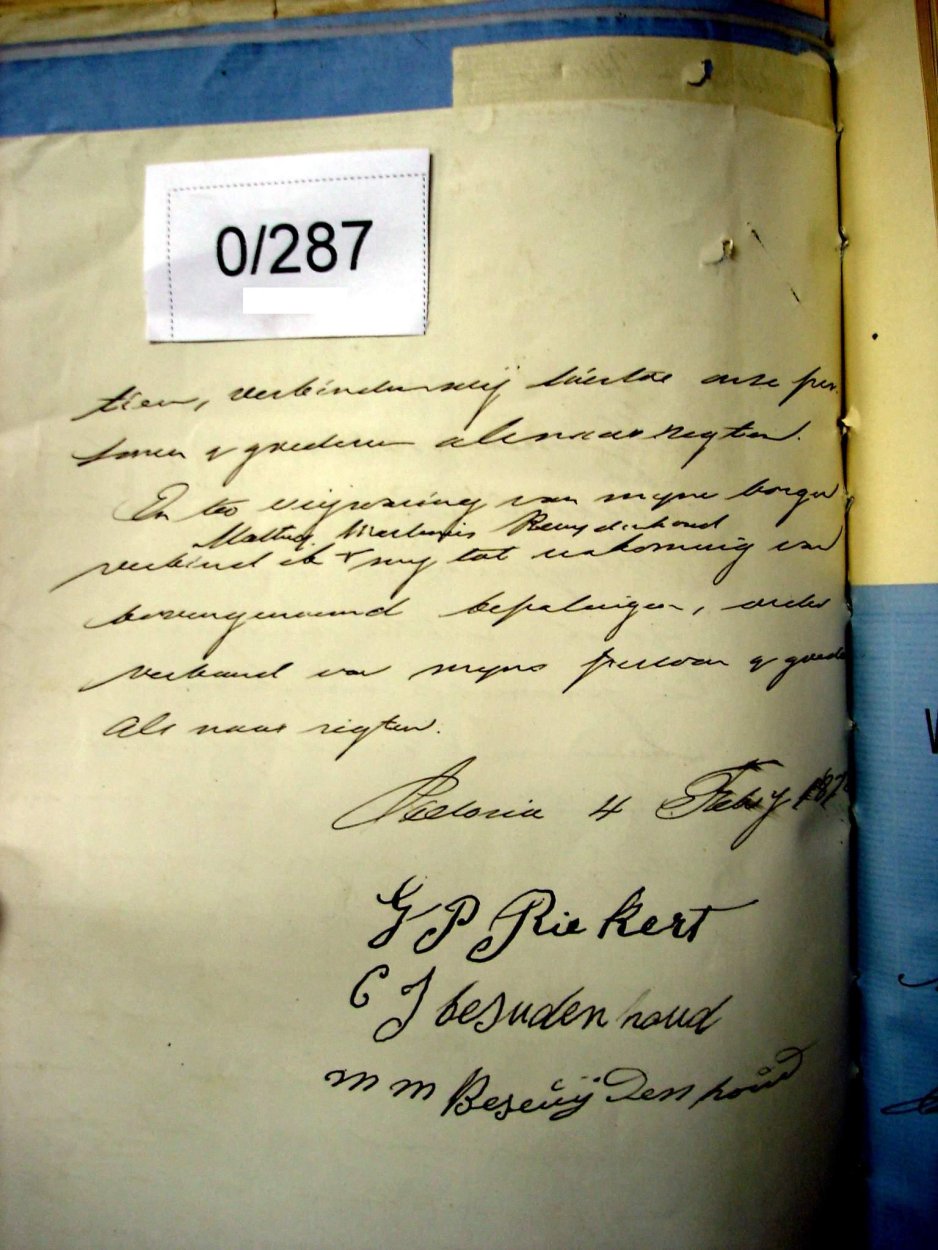 0/287
tien, verbinden wij hierbde onse per
sonen & goederen als naar regten.
En ter vrijwaring van myne borgen
Matthys Marthinus Bezuidenhoud
verbind ik my tot nakoming van
bovengenoemd bepalingen, onder
verband van myne persoon & goede
als naar regten.
Pretoria 4 Feby 187
G P Riekert
C J besudenhoud
m m Beseuijdenhoud